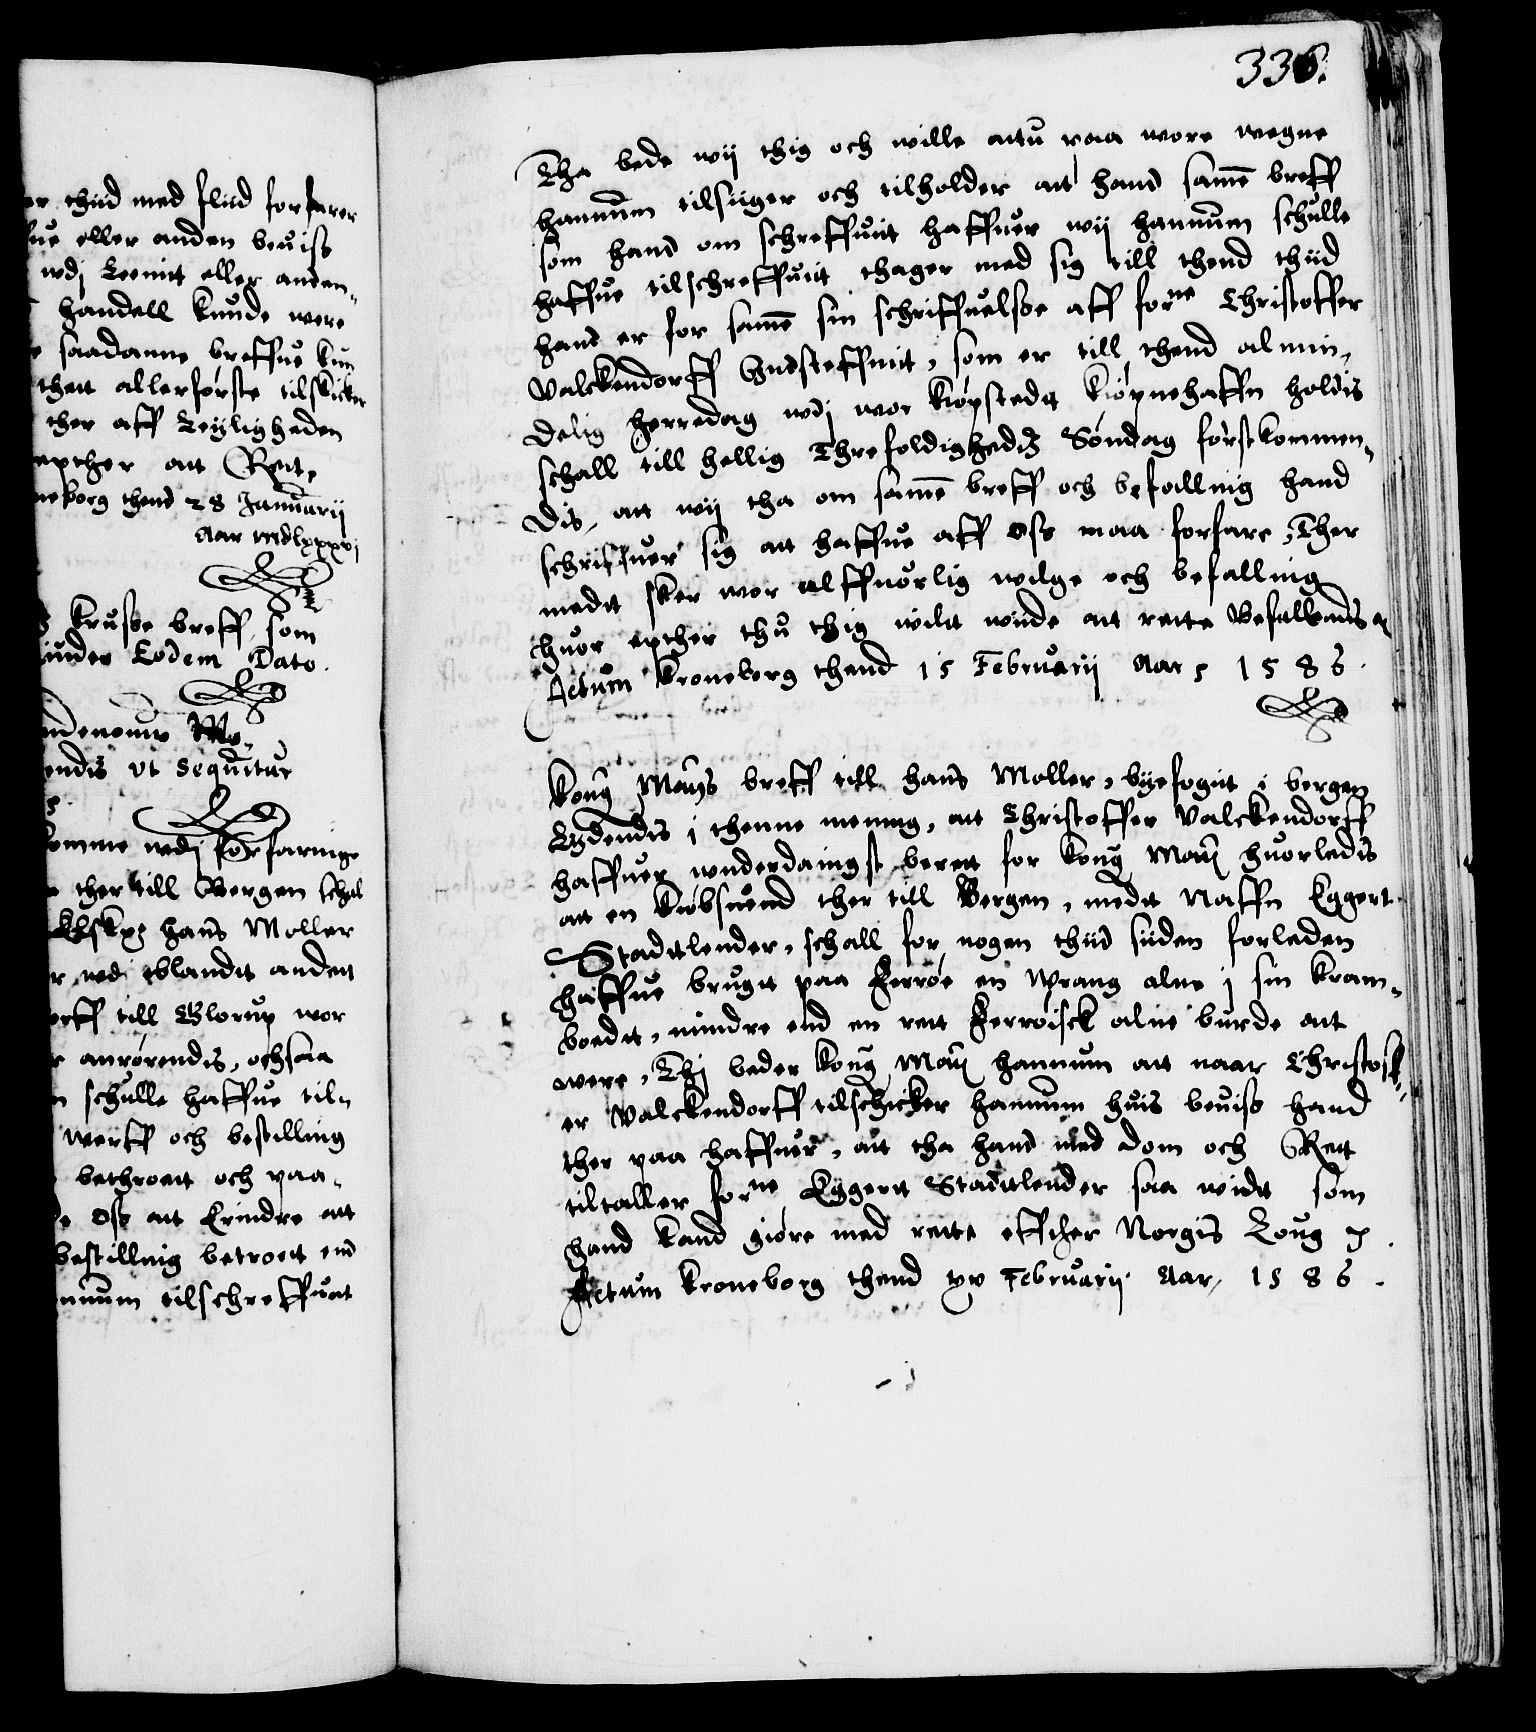 336.
er thiid med fliid forfarer
fue eller anden beuiss
wdj Leenitt eller anden,
handell kunde were
saadanne breffue kun
thett allerførste tilskicker
ther aff Leyligheden
epther att Rett,
neborg thend 28 Januarij
Aar mdlxxxvj
kruse breff som
under Eodem Dato.
endis vt sequitur
komme wdj forfaringe
ther till Bergen schal
hans Moller
r wdj iblandt andett
orff till Glorup wor
r anrørendis, ochsaa
n schulle haffue til=
werff och bestilling
bethroett och paa,
de Oss att Erindre att
bestillnig betroett end
nnum tilschreffuat
Tha bede wij thig och wille attu paa wore wegne
hannum tilsiiger och tilholder att hand same breff
som hand om schreffuit haffuer wij hannum schulle
haffue tilschreffuit thager med sig till thend thiid
hand er for same sin schriffuelsse aff forne Christoffer
Valckendorff Indsteffnit, som er till thend almin,
delig herredag wdj wor kiøpstedt kiøpnehaffn holdis
schall till hellig Threfoldighedz Søndag førstkommen,
dis, att wij tha om same breff och befallnig hand
schriffuer sig att haffue aff Oss maa forfare, Ther
medt sker wor alffuorlig wilge och befalling
huor epther thu thig wilt wiide att rette Befallends
Actum Kroneborg thend 15 Februarij Aar 1586.
Kong Maytts breff till hans Moller, byefogitt i bergen
Lydendis i thenne mening, att Christoffer Valckendorff
haffuer wnderdaingst berett for kong Maytt huorledis
att en kiøbsuend ther till Bergen, medt Naffn Eggert
Stadtlender, schall for nogen thiid siiden forleden
haffue brugt paa Ferrøe en wrang alne i sin kram,
boedt, mindre end en rett Ferroisck alne burde att
were, Thj beder kong Maytt hannum att naar Christoff,
er Valckendorff tilschicker hannum huis beuiss hand
ther paa haffuer, att tha hand med dom och Rett
tiltaller forne Eggertt Stadtlender saa widt som
hand kand giøre med rette effther Norgis Loug
Actum Kroneborg thend xv Februarij Aar, 1586.